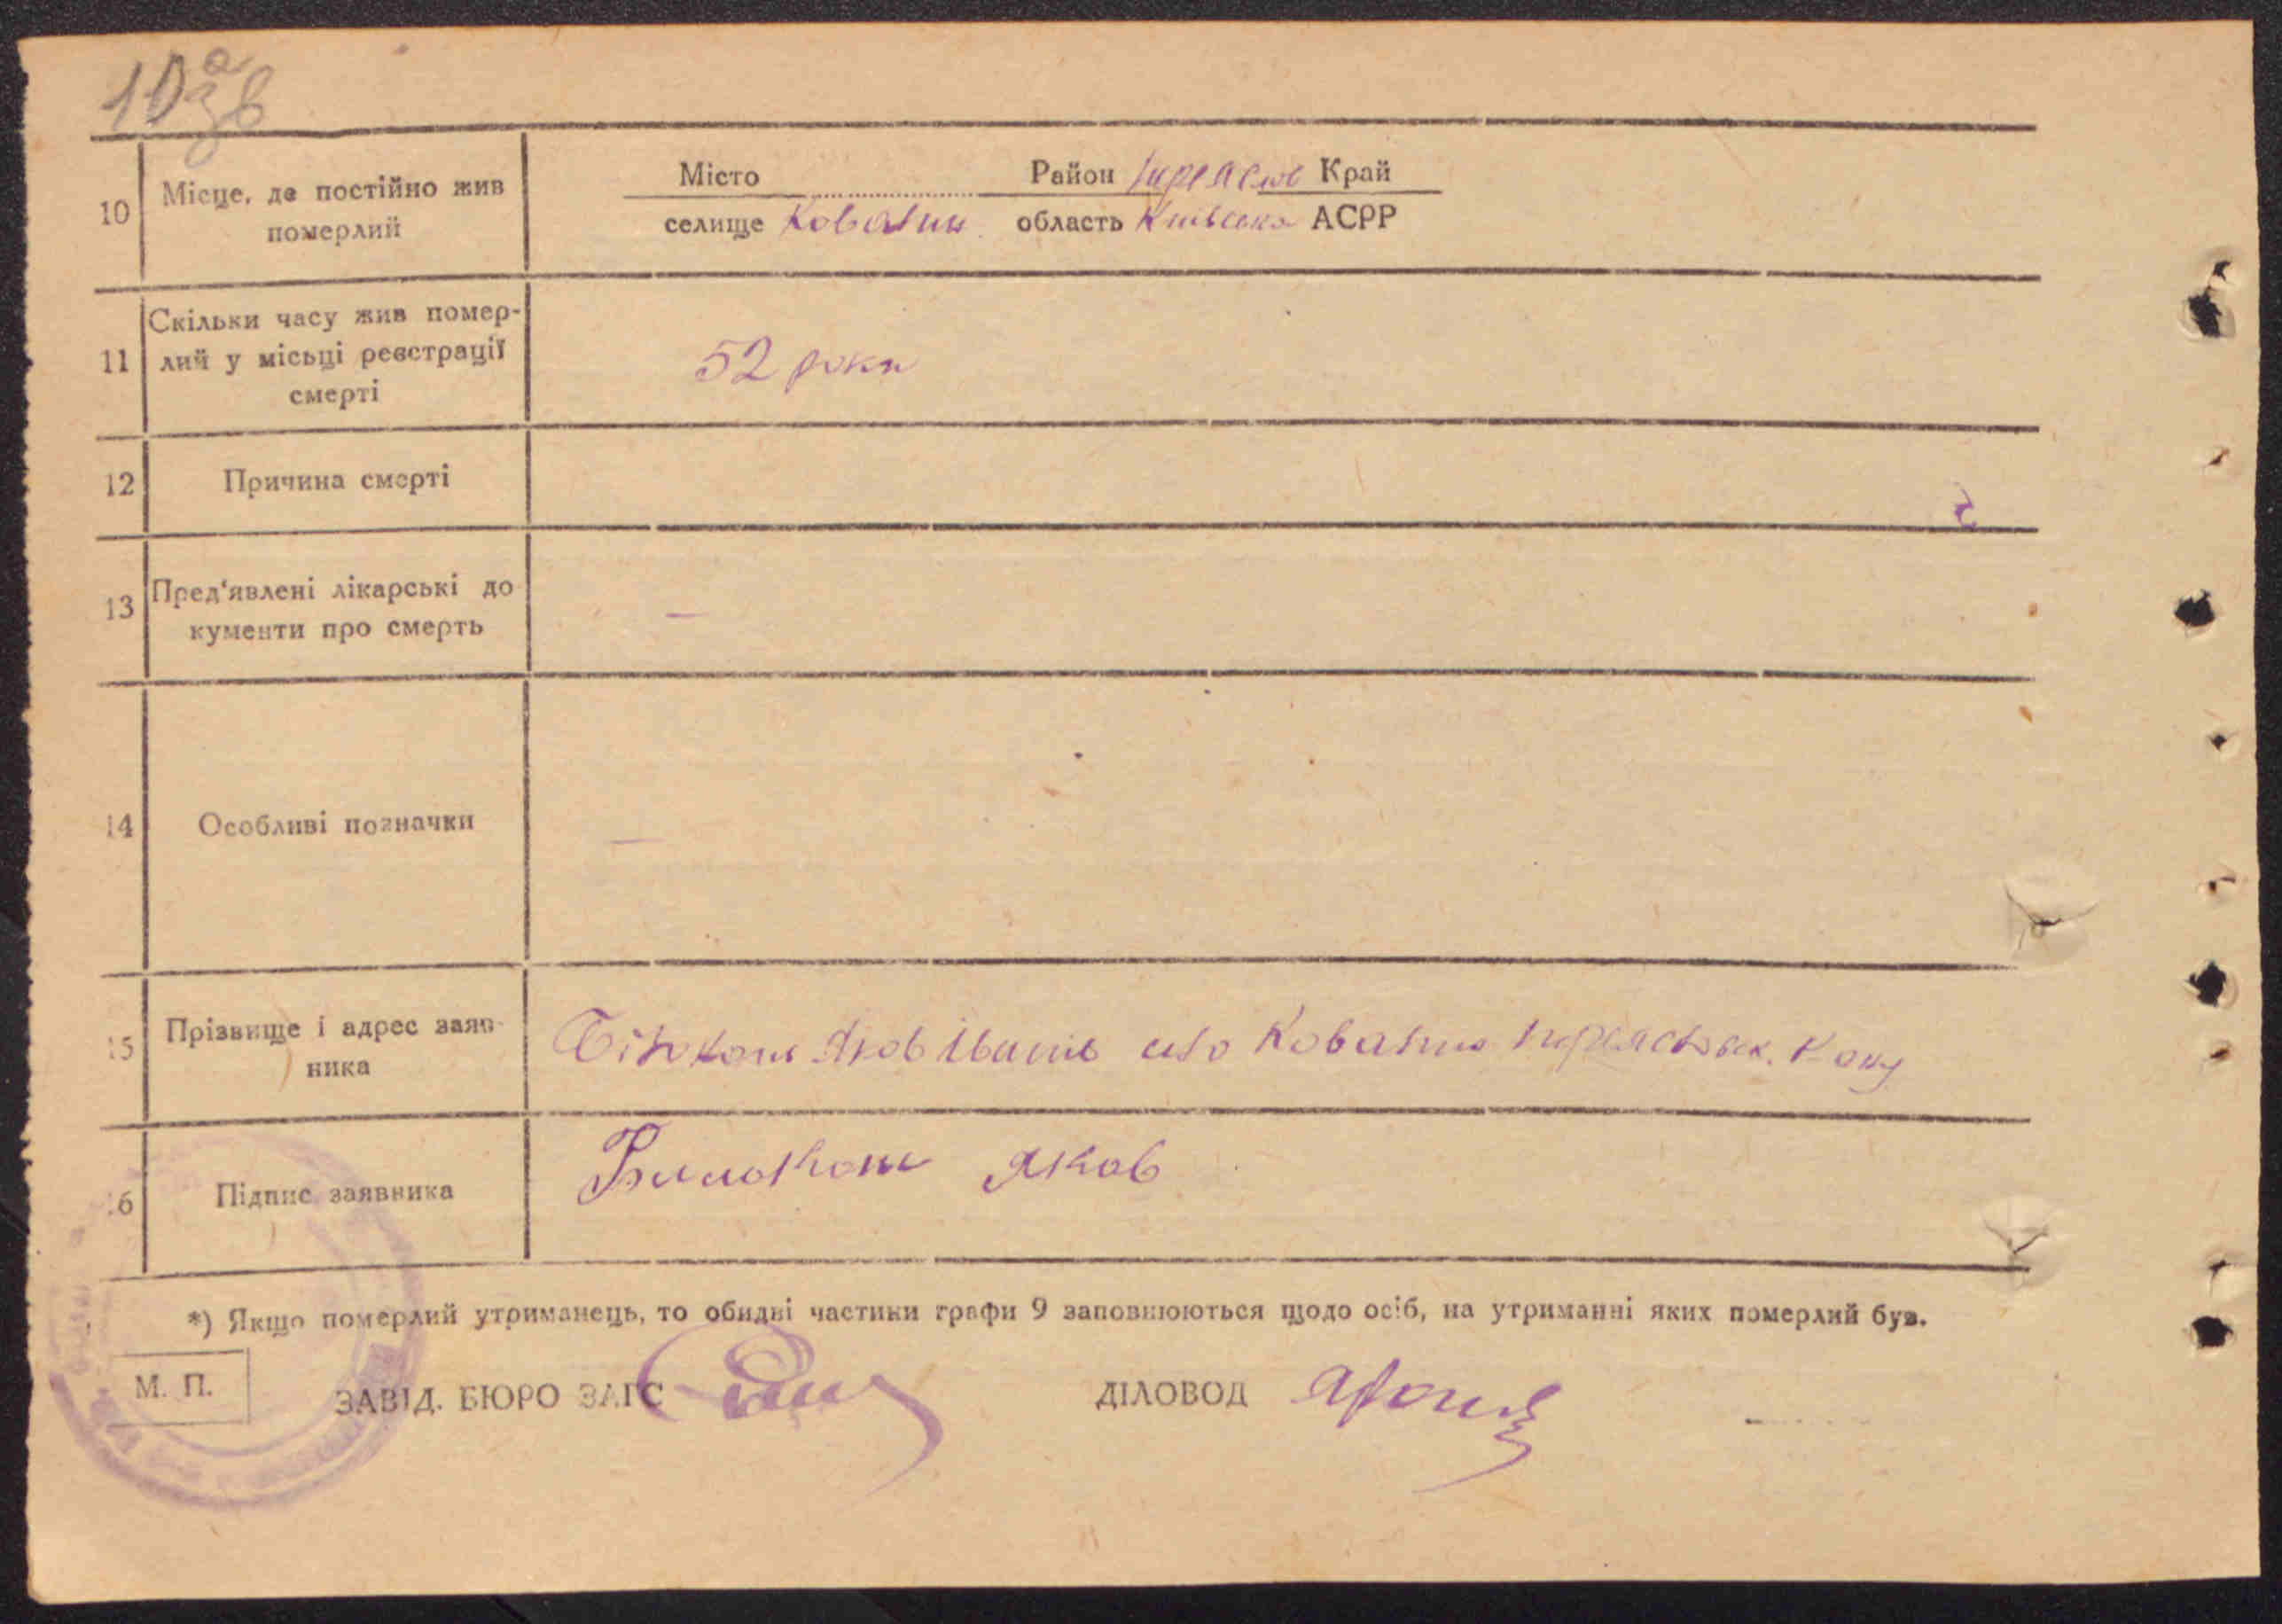 10
10 Місце, де постійно жив померлий
Місто Район Переяслов Край
селище Ковалин область Київська АСРР
11 Скільки часу жив помер-
лий у місьці реєстрації
смерті
52 роки
12 Причина смерті
13 Пред'явлені лікарські до
кументи про смерть
—
14 Особливі позначки
—
15 Прізвище і адрес заяв-
ника
Білоконь Яков Іванів село Ковалин Переясловск. р-ону
16 Підпис заявника
Билоконь Яков
*) Якщо померлий утриманець, то обидві частини графи 9 заповнюються щодо осіб, на утриманні яких померлий був.
М. П.
ЗАВІД. БЮРО ЗАГС
ДІЛОВОД